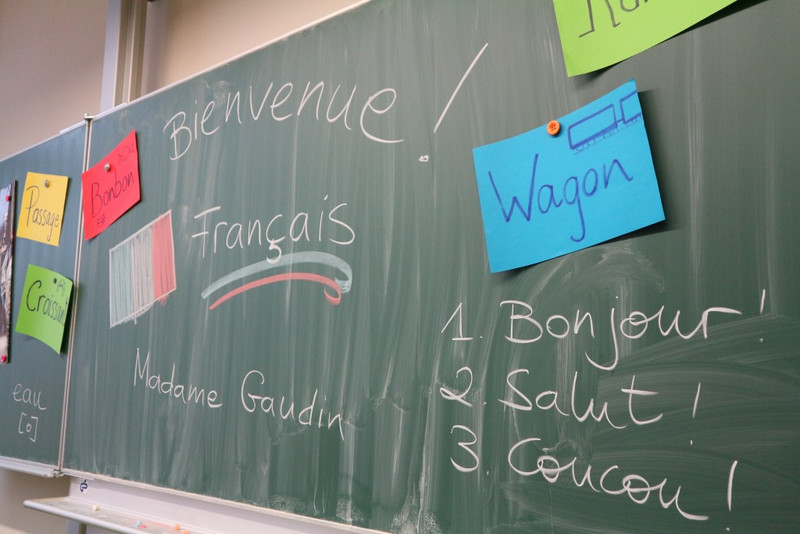 Bienvenue!
Français
Madame Gaudin
1. Bonjour!
2. Salut!
3. Coucou!
Wagon
Bonbon
Passage
eau
[o]